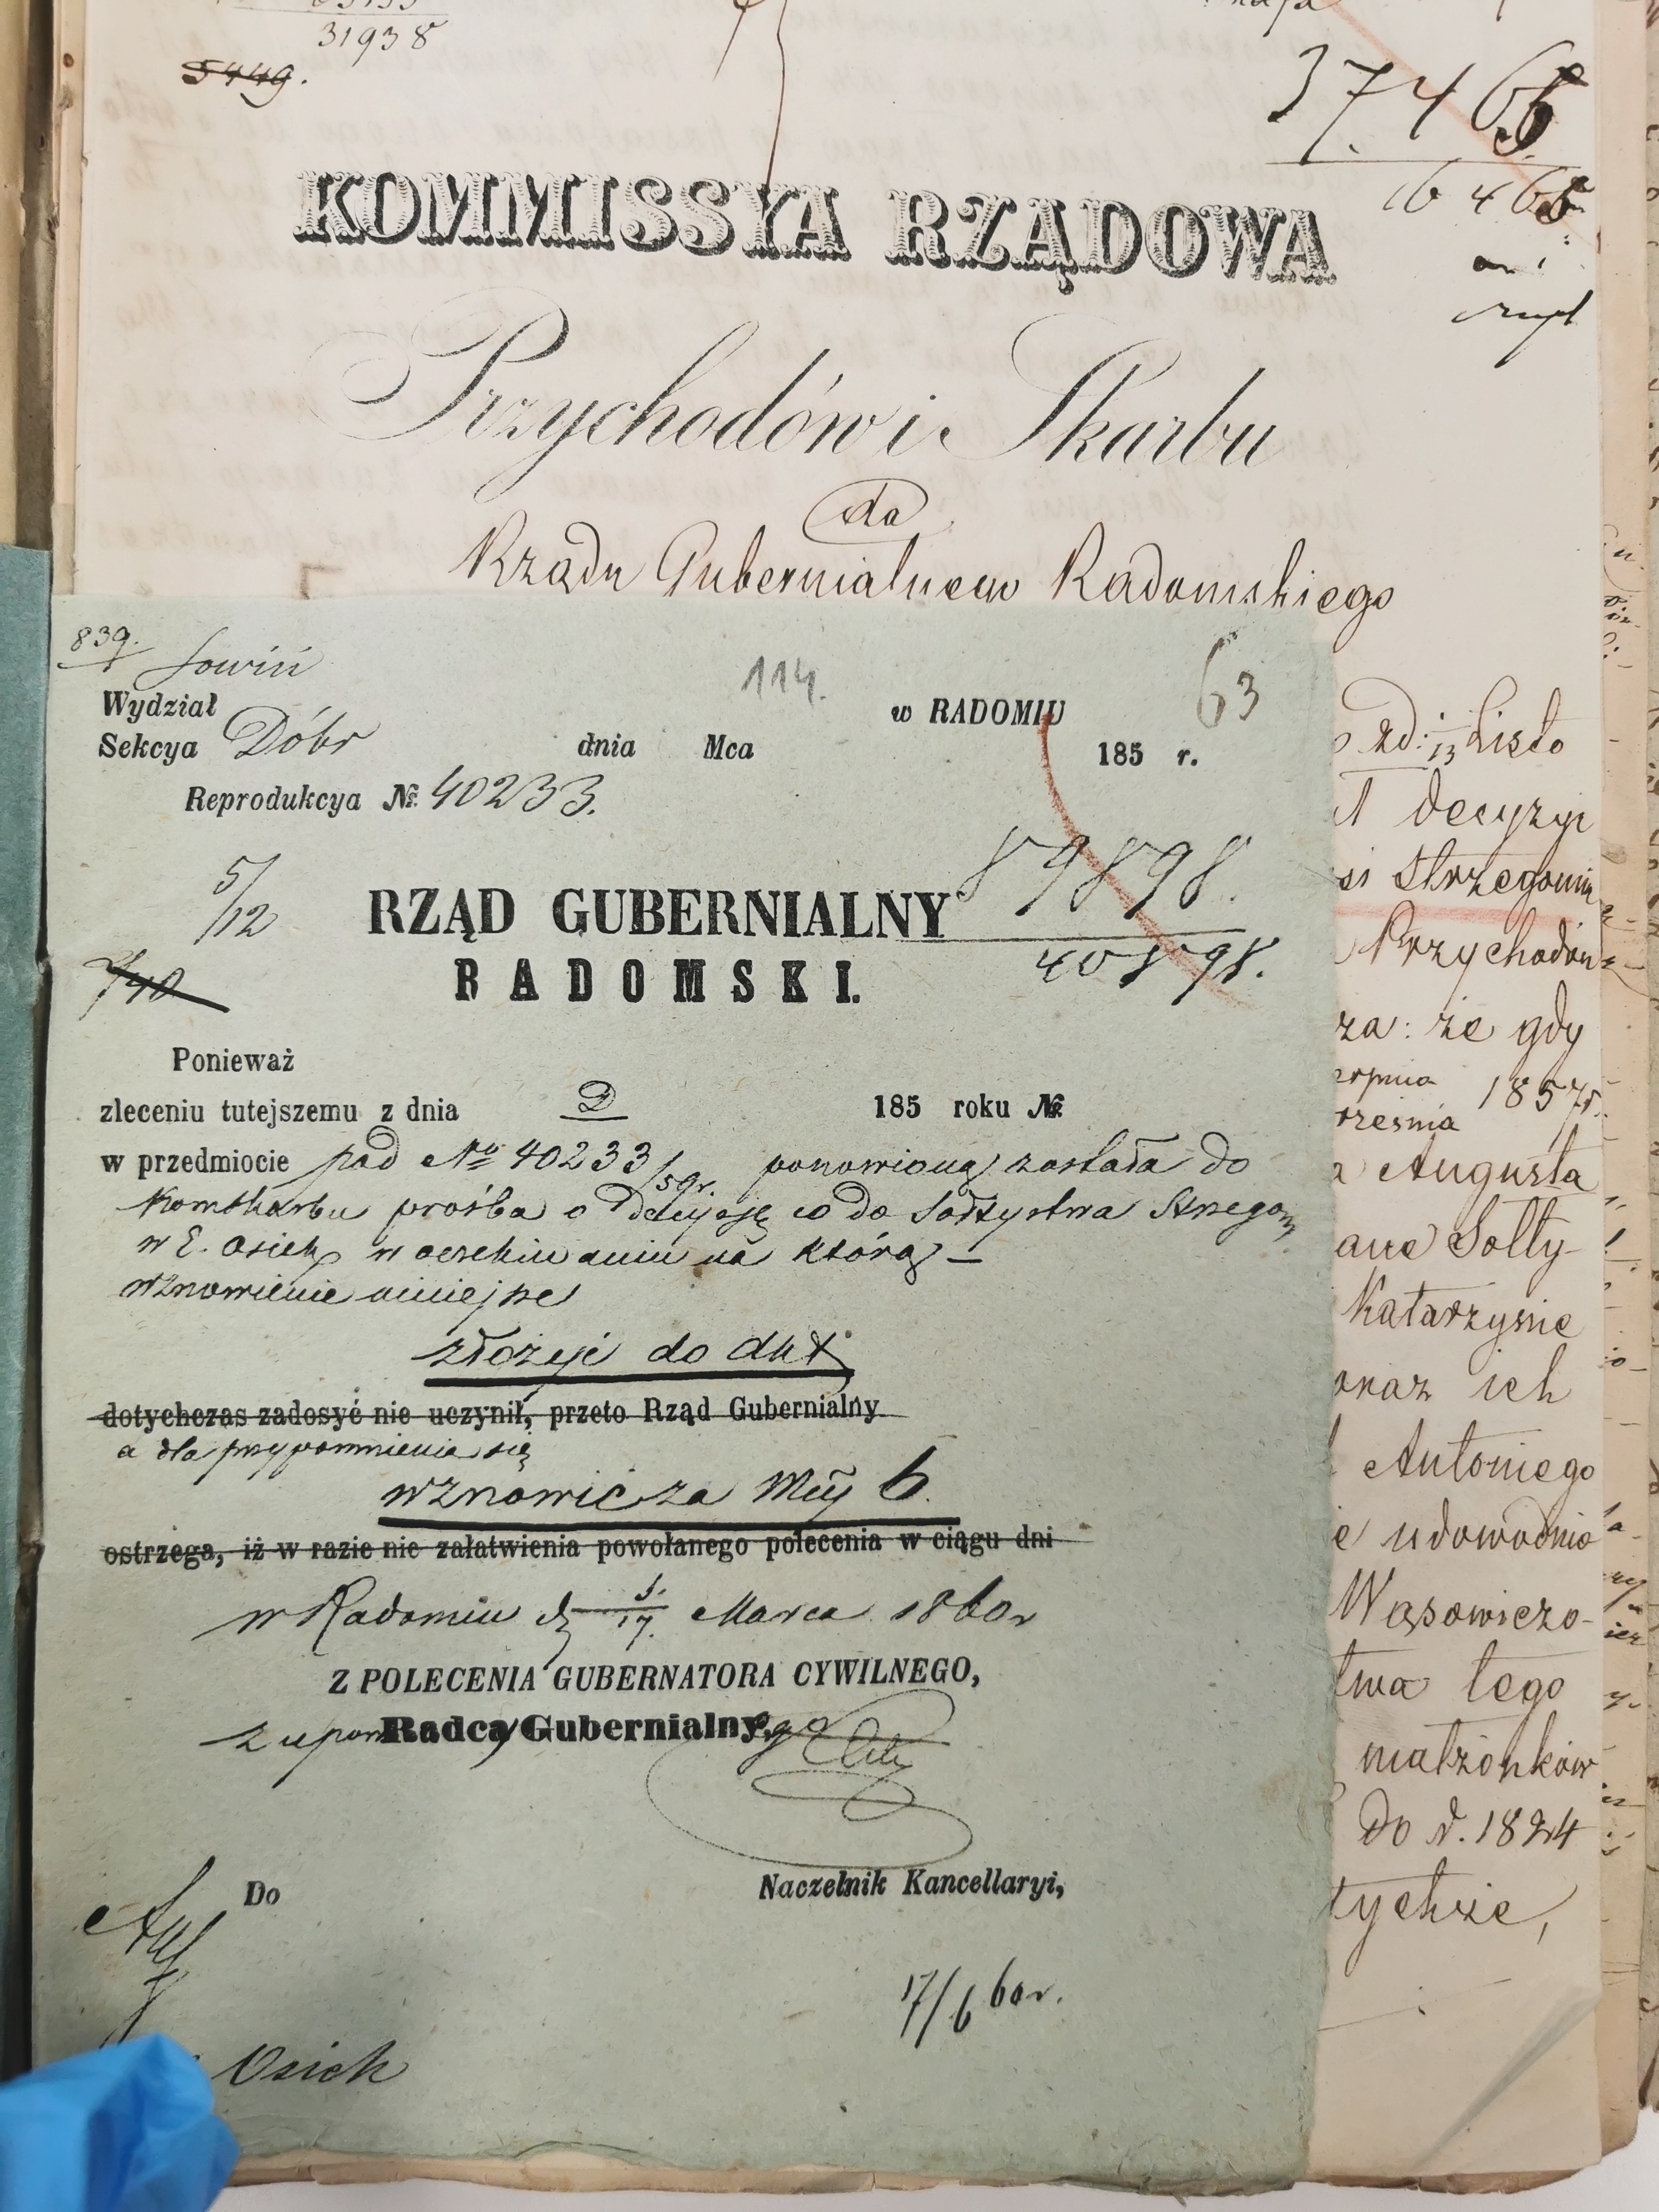 31938
5449.
37.465
16465
KOMMISSYA RZĄDOWA
Przychodów i Skarbu
do
Rządu Gubernialnego Radomskiego
839.
114.
63
Wydział
w RADOMIU
Sekcya Dóbr
dnia Mca 185 r.
Reprodukcya № 40233.
5/12
89898.
RZĄD GUBERNIALNY
40898.
RADOMSKI.
Ponieważ
zleceniu tutejszemu z dnia 185 roku №
w przedmiocie pod No 40233/59r. ponowioną została do
Komskarbu prośba o decyzję co do Sołtystwa Strzegom
w E. Osiek w oczekiwaniu na którą —
wznowienie niniejsze
złożyć do akt
dotychczas zadosyć nie uczynił, przeto Rząd Gubernialny
a dla przypomnienia się
wznowić za Mcy 6.
ostrzega, iż w razie nie załatwienia powołanego polecenia w ciągu dni
w Radomiu d. 5/17 Marca 1860r
Z POLECENIA GUBERNATORA CYWILNEGO,
z upow Radcy Gubernialnego
Do
Naczelnik Kancellaryi,
17/6 60r.
Osiek
zd: 13 Listo
decyzyi
si Strzegomia
Przychodów
za: że gdy
erpnia
1857r.
rześnia
a Augusta
ane Sołty-
Katarzynie
oraz ich
Antoniego
e udowodnio
Wąsowiczo-
twa tego
małżonków
do r. 1824
tychże,